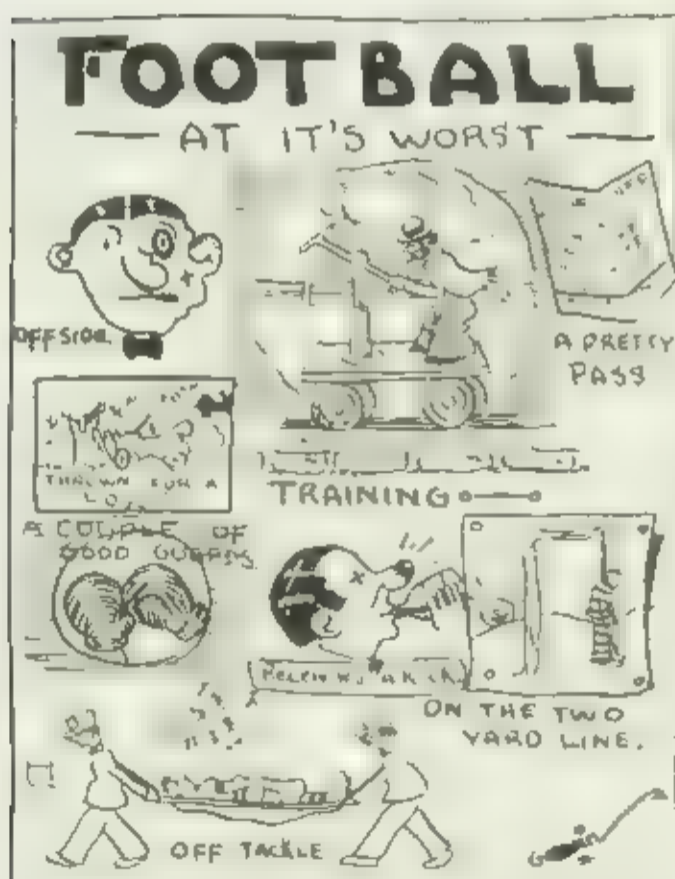 FOOTBALL
AT IT'S WORST
OFFSIDE.
A PRETTY
PASS
THROWN FOR A
LOSS
TRAINING
A COUPLE OF
GOOD GUARDS
ON THE TWO
YARD LINE.
OFF TACKLE